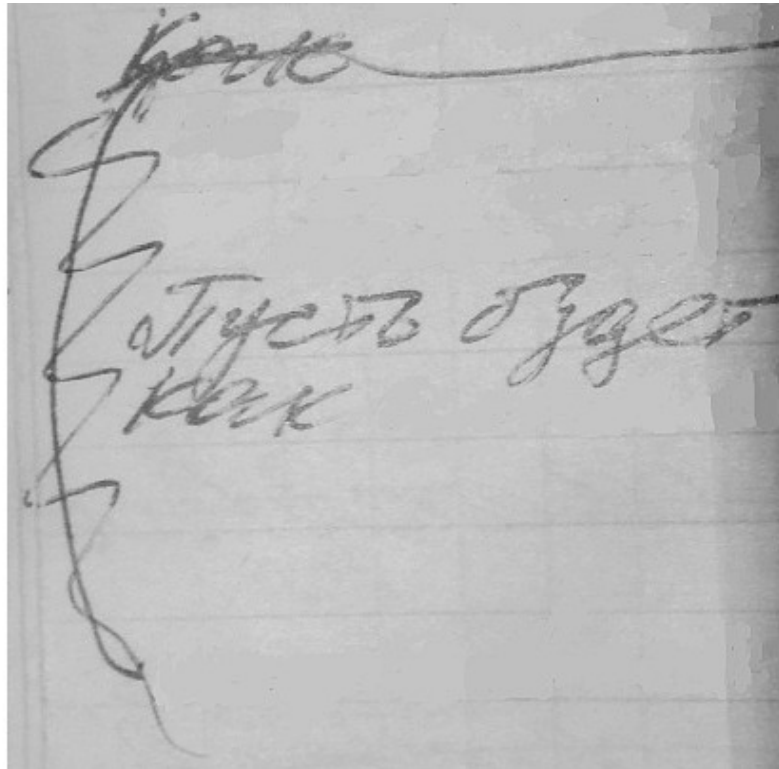 Как
Пусть будет
как